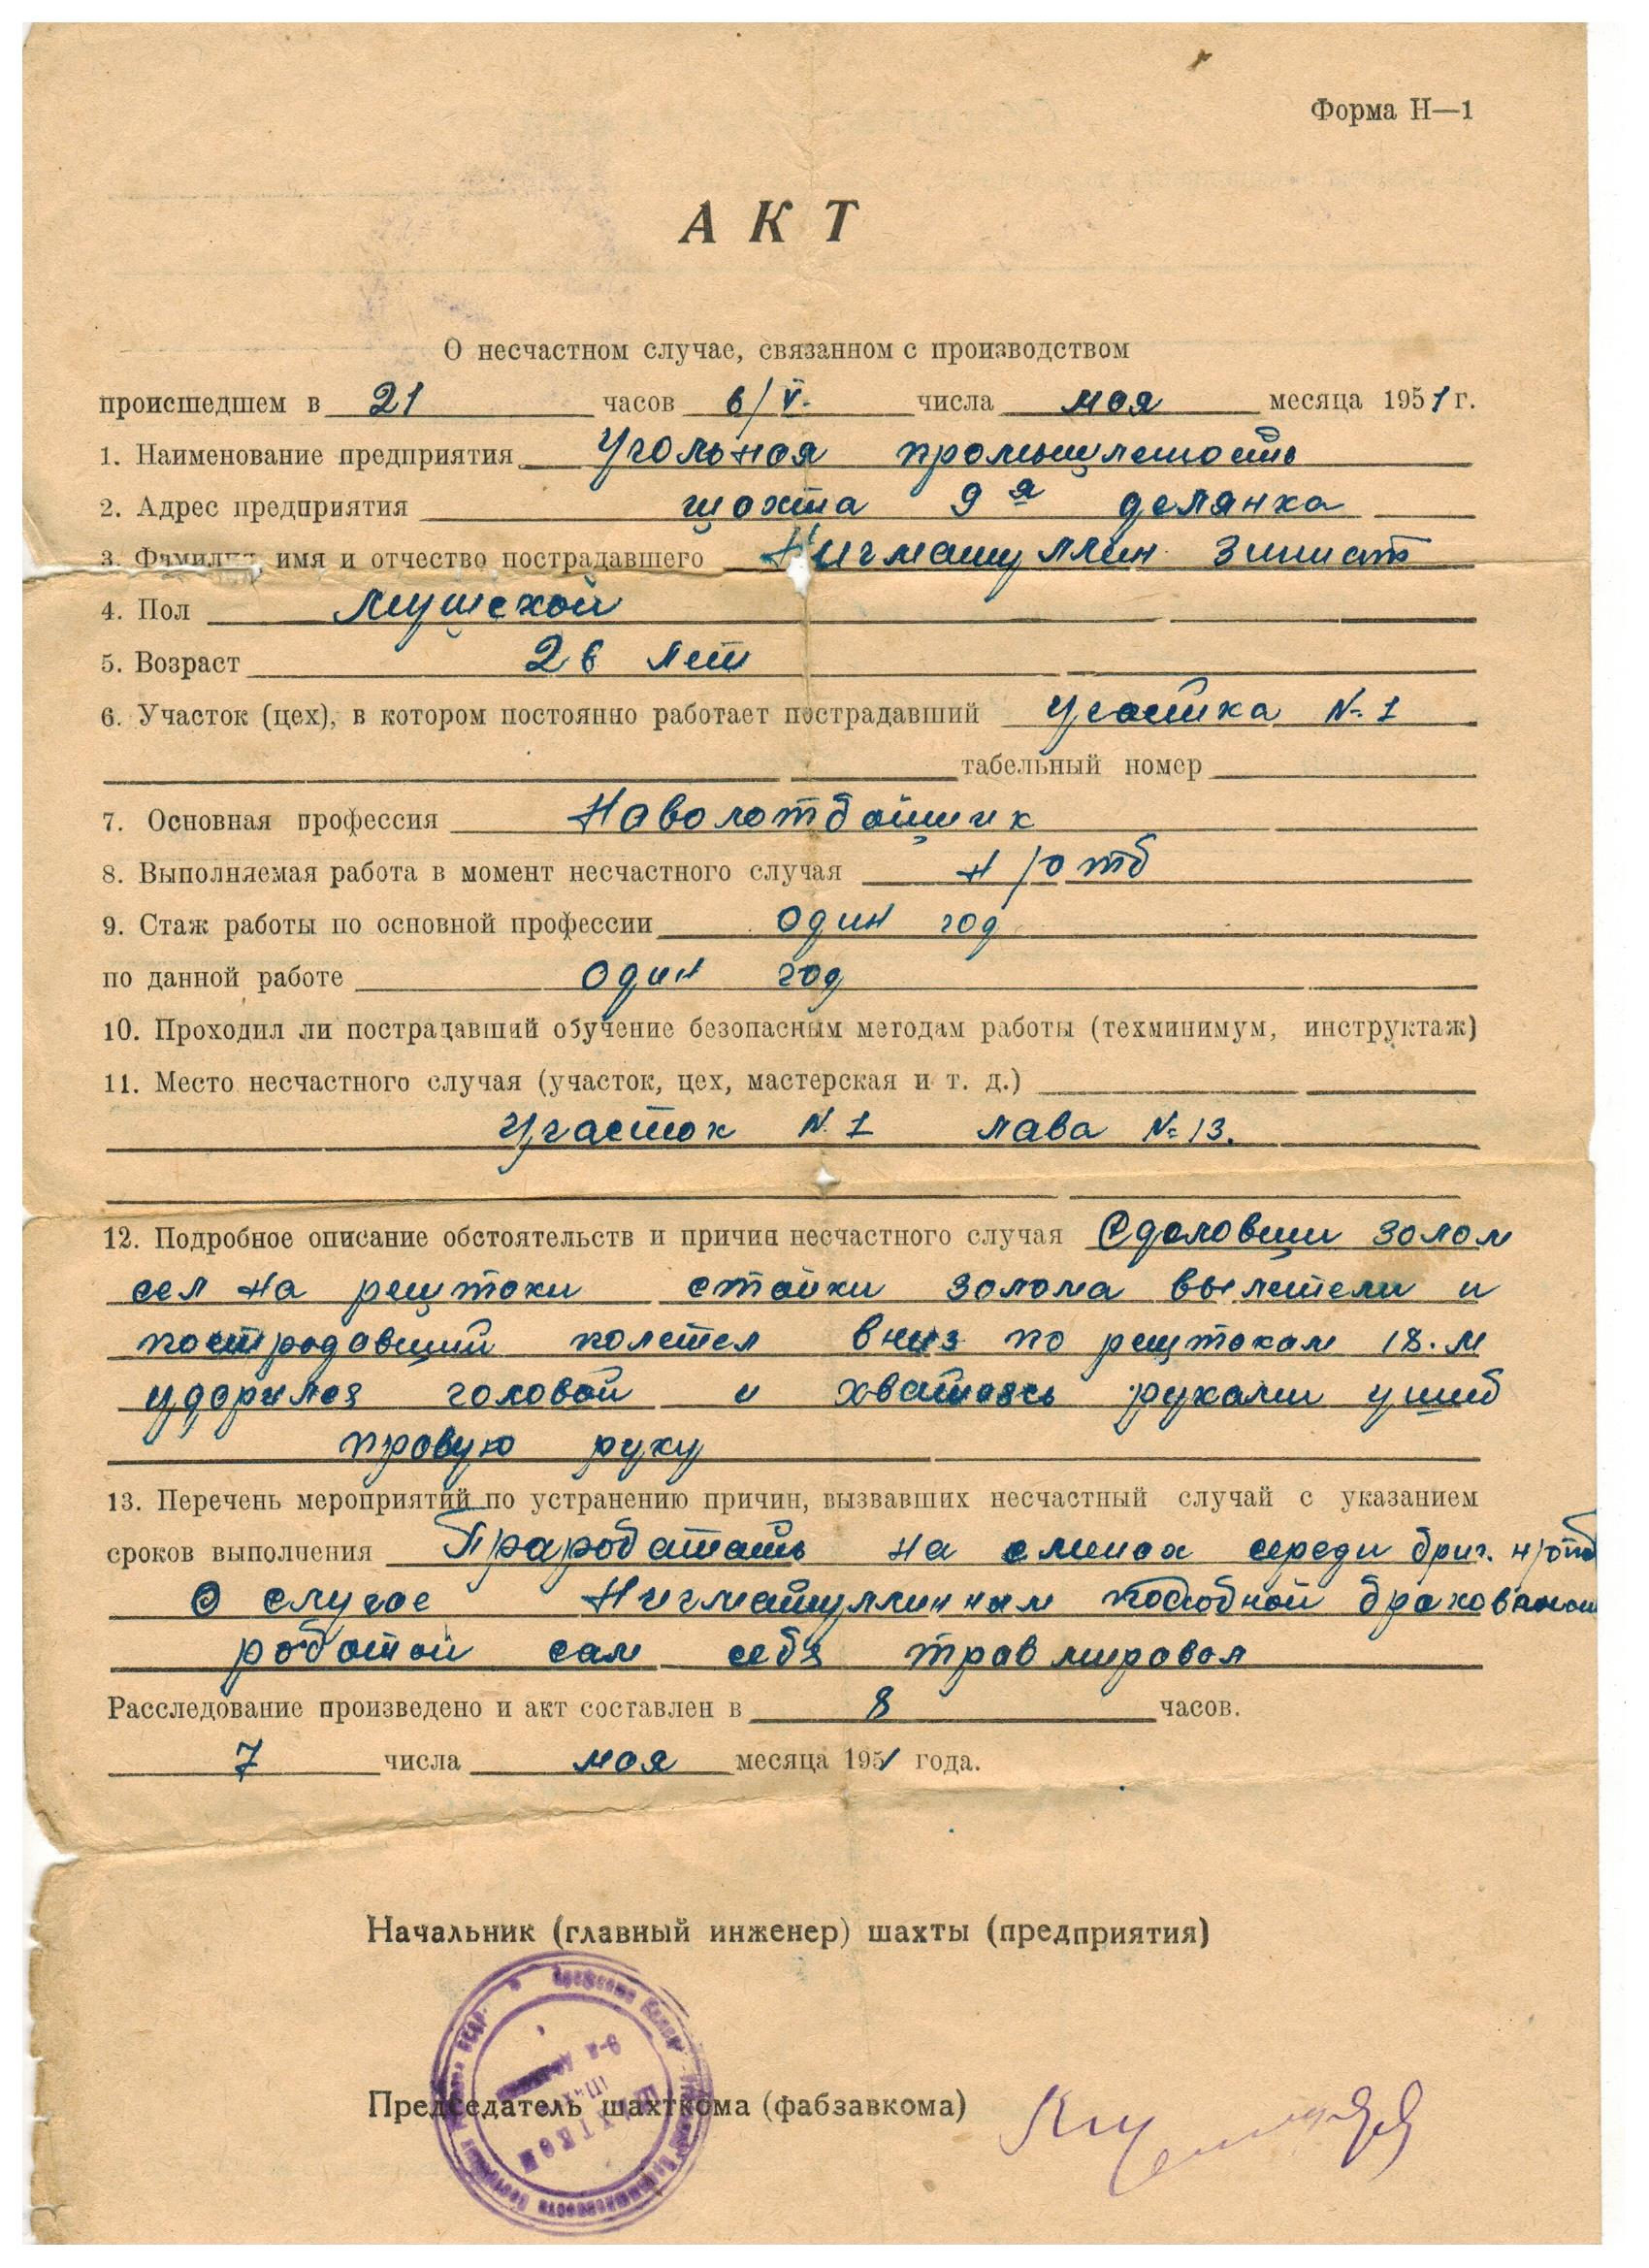 Форма Н—1
АКТ
О несчастном случае, связанном с производством
происшедшем в 21 часов 6/V. числа мая месяца 1951 г.
1. Наименование предприятия Угольная промышлепность
2. Адрес предприятия шахта 9я делянка
3. Фамилия, имя и отчество пострадавшего Нигматуллин Зиннат
4. Пол Мушской
5. Возраст 26 лет
6. Участок (цех), в котором постоянно работает пострадавший Участка №1
табельный номер
7. Основная профессия Наволотбойщик
8. Выполняемая работа в момент несчастного случая н/отб
9. Стаж работы по основной профессии один год
по данной работе один год
10. Проходил ли пострадавший обучение безопасным методам работы (техминимум, инструктаж)
11. Место несчастного случая (участок, цех, мастерская и т. д.)
Участок №1 лава №13.
12. Подробное описание обстоятельств и причин несчастного случая Сделовши залом
сел на рештоки стойки залома вылетели и
пострадавший полетел вниз по рештакам 18.м
ударился головой и хватаясь руками ушиб
правую руку
13. Перечень мероприятий по устранению причин, вызвавших несчастный случай с указанием
сроков выполнения Праработать на сменах среди бриг. н/отб
О случае Нигматуллинным подобной бракованой
работой сам себя травмировал
Расследование произведено и акт составлен в 8 часов.
7 числа мая месяца 1951 года.
Начальник (главный инженер) шахты (предприятия)
Председатель шахткома (фабзавкома)
ШАХТКОМ